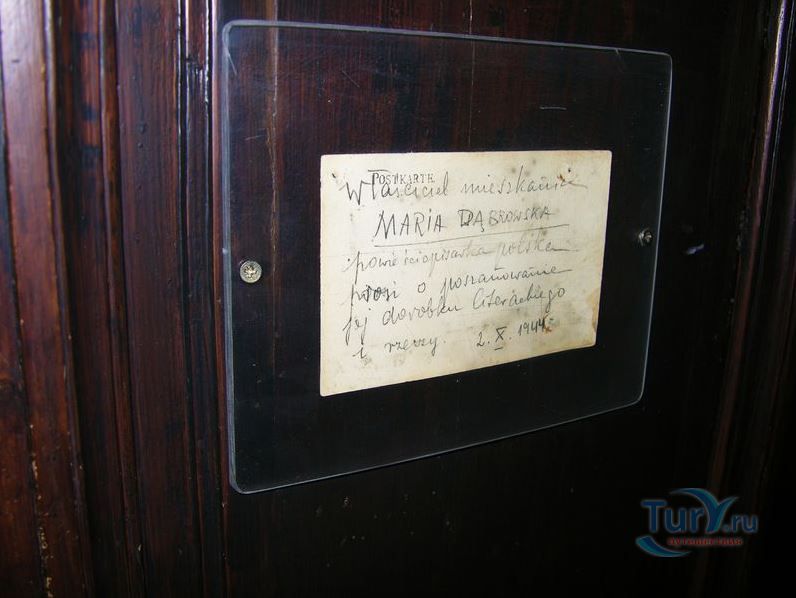 POSTKARTE
Właściciel mieszkania
MARIA DĄBROWSKA
powieściopisarka polska
prosi o poszanowanie
jej dorobku literackiego
i rzeczy. 2. X. 1944 r.
TurY.ru
путешествия